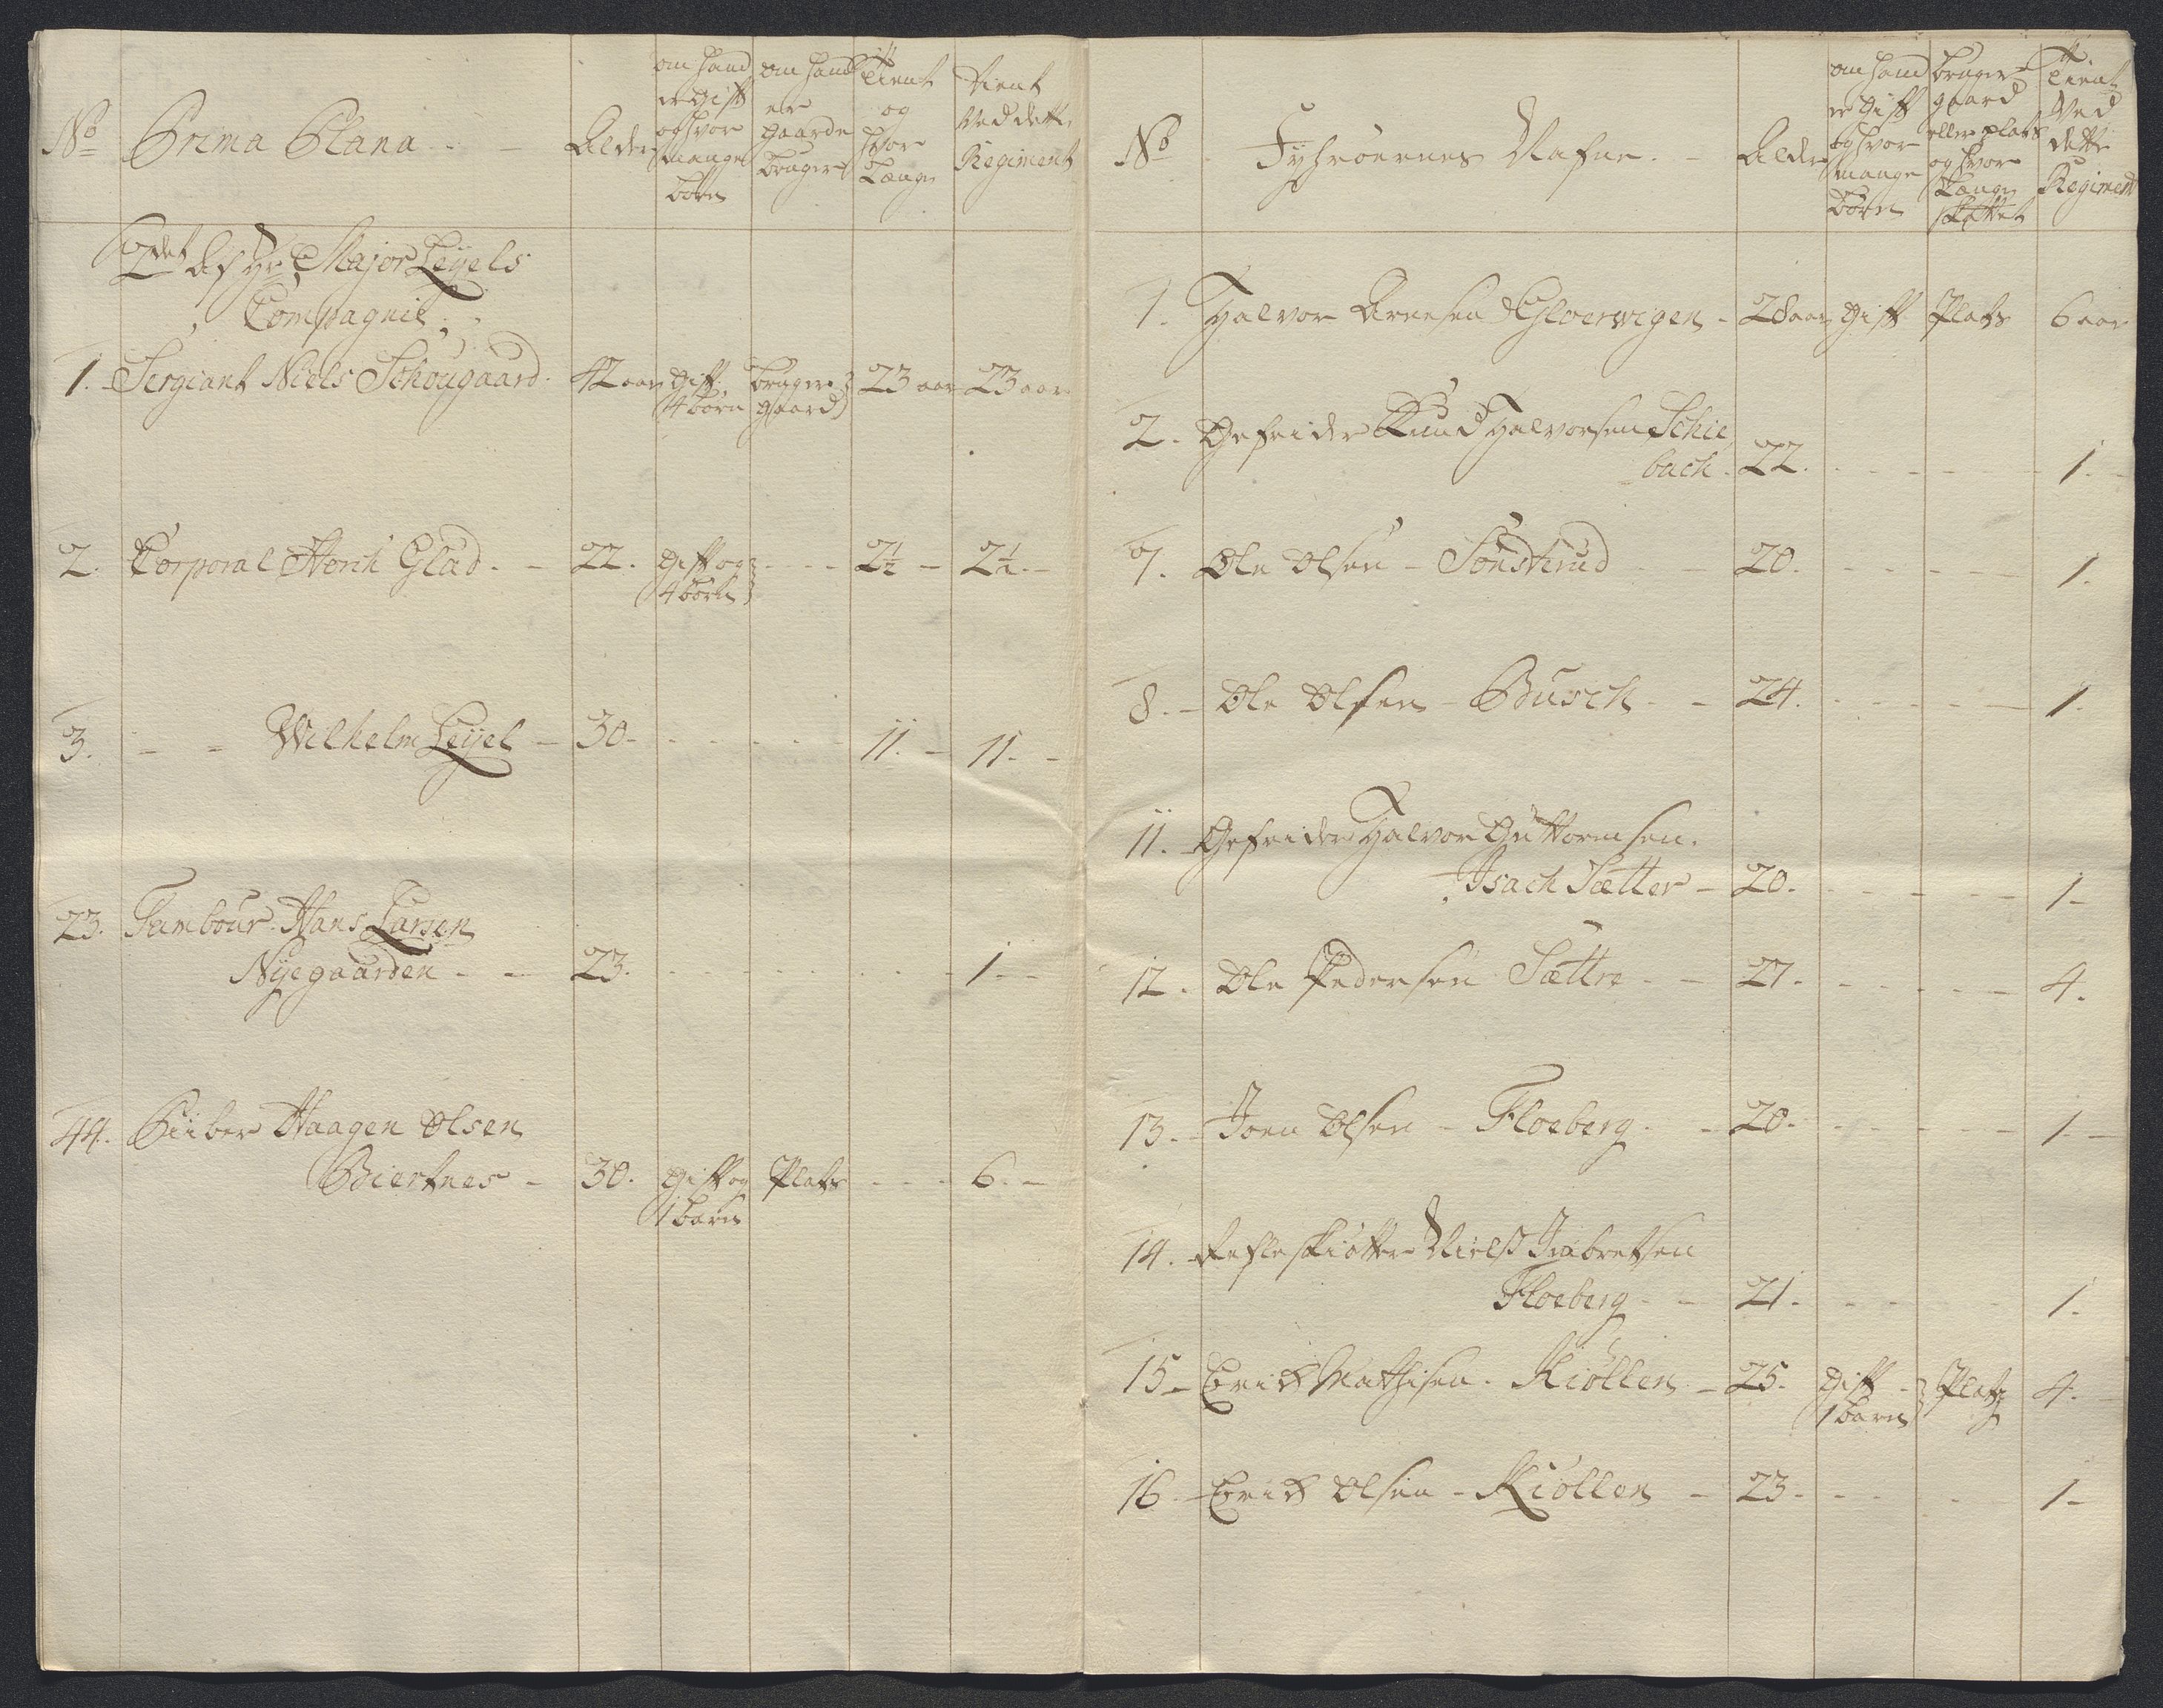 No Prima Plana - - Alder om hand er gift og hvor mange børn om hand er gaards bruger Tient og hvor Længe Tient Ved dette Regiment
Af Hr Major Leÿels
Compagnie
1. Sergiant Niels Schougaard. 42 aar gift 4 børn bruger gaard 23 aar 23 aar
2. Corporal Horch Glad. - 22. gift og 4 børn - - - 2½ - 2½. -
3. - - Wilhelm Leÿel - 30 - - - - - 11. - 11. -
23. Tambour Hans Larsen
Nÿegaarden - - 23. - - - - - - 1. -
44. Piiber Haagen Olsen
Biertnes - 30. gift og 1 barn Plads - - - 6. -
No Nafne. - Alder om hand er gift og hvor mange børn bruger gaard eller plads og hvor Længe Tient Ved dette Regiment
1. Halvor Arnesen - 28 aar gift Plads 6 aar
2. Gefreider Knud Halvorsen Schie
bach. 22. - - - - 1. -
7. Ole Olsen - Sønsterud - - 20. - - - - 1.
8. - Ole Olsen - Busch - - 24. - - - - 1.
11. Gefreider Halvor Guttormsen.
Isach Sætter - 20. - - - - 1 -
12. Ole Pedersen Sættre - - 27. - - - - 4.
13. - Joen Olsen - Floeberg - - 20. - - - - 1. -
14. Niels
Floeberg - - 21. - - - 1.
15 - Erich Mathisen. Kiøllen - 25. gift - 1 barn Plads 4.
16. - Erich Olsen - Kiøllen - 23 - - - 1 -